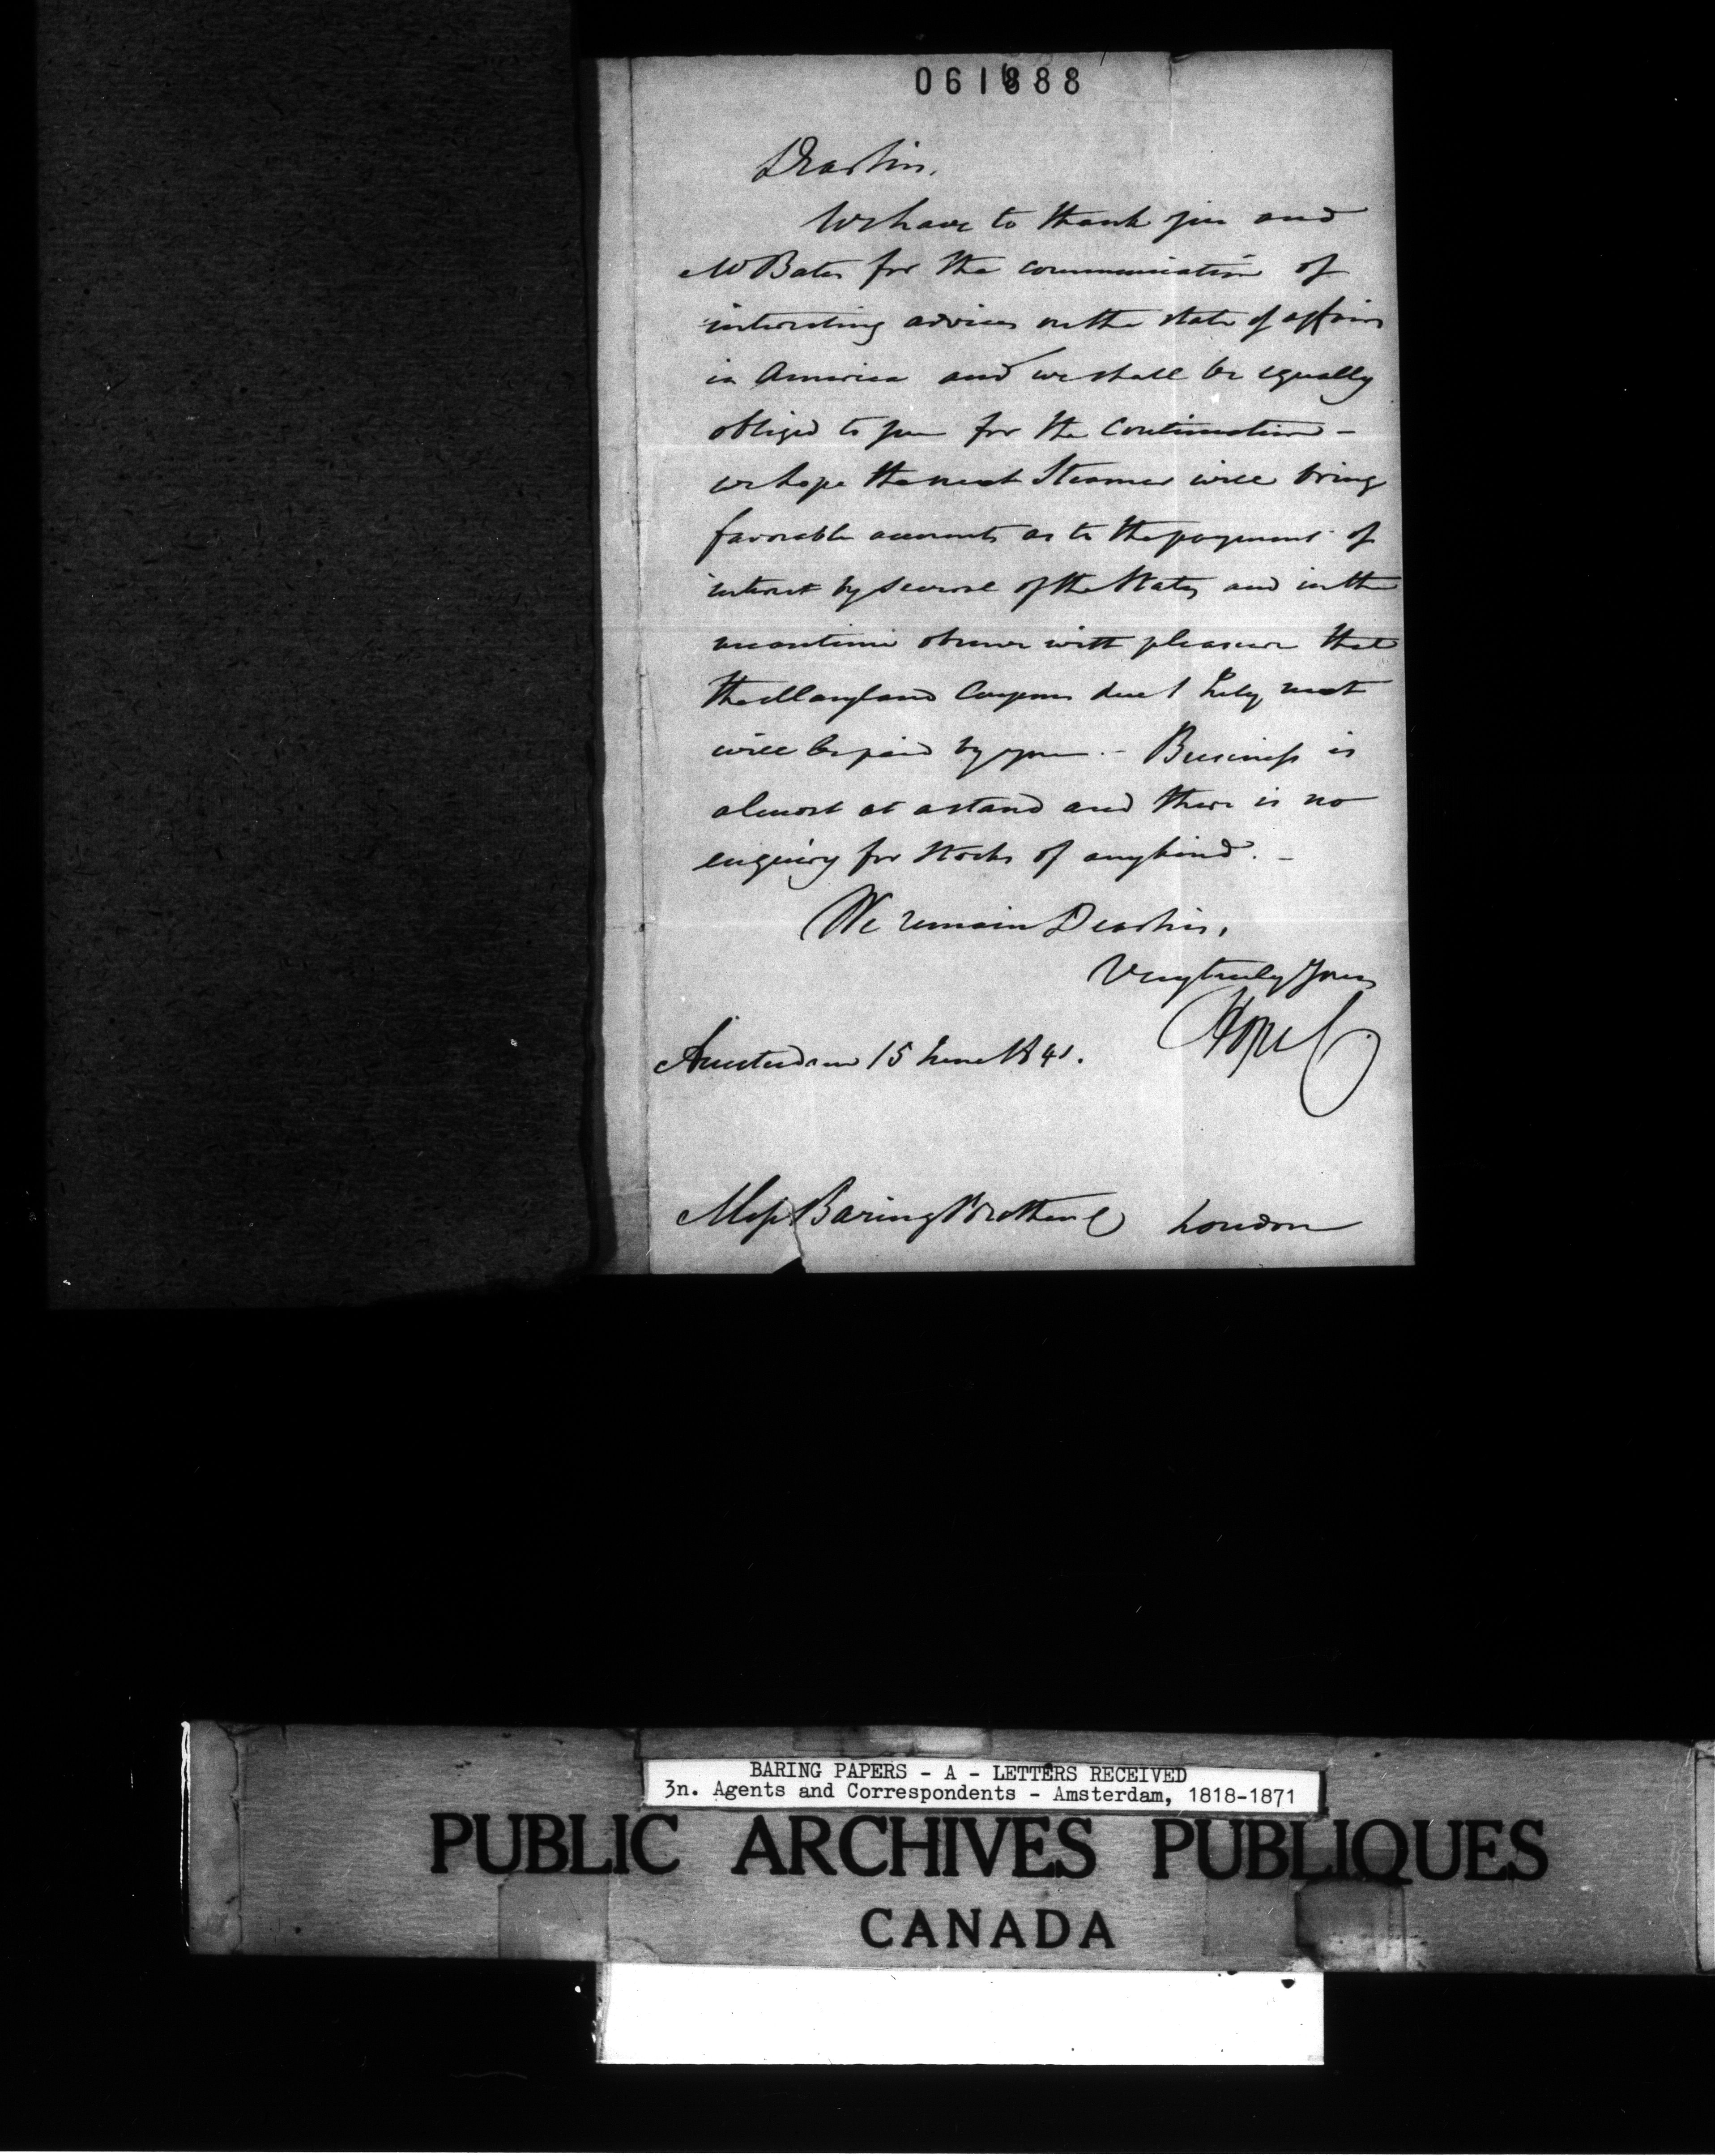 061888
Dear Sir,
We have to thank you and
Mr Bates for the communication of
interesting advices on the state of affairs
in America and we shall be equally
obliged to you for the continuation –
we hope the next Steamer will bring
favorable accounts as to the payment of
interest by several of the States and in the
meantime observe with pleasure that
the Maryland Coupons due 1 July next
will be paid by you. – Business is
almost at a stand and there is no
enquiry for stocks of any kind. –
We remain Dear Sir,
Very truly Yours
Hope C
Amsterdam 15 June 1841.
Mess Baring Brothers C London
BARING PAPERS - A - LETTERS RECEIVED
3n. Agents and Correspondents - Amsterdam, 1818-1871
PUBLIC ARCHIVES PUBLIQUES
CANADA